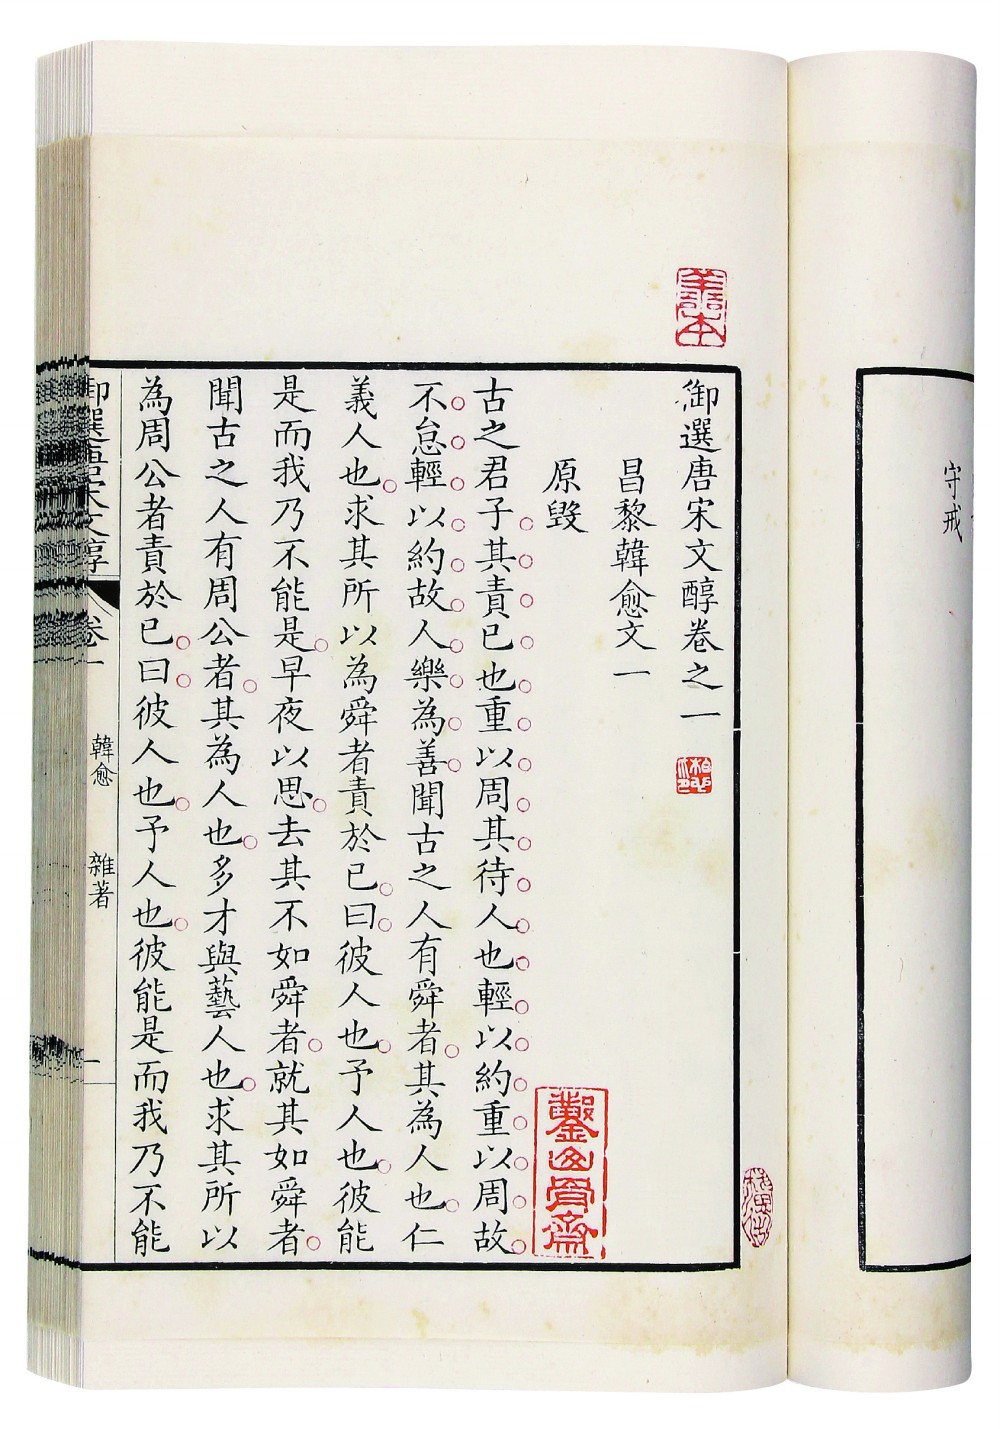 守戒
善本
御選唐宋文醇卷之一
昌黎韓愈文一
原毀
古之君子其責已也重以周其待人也輕以約重以周故
不怠輕以約故人樂為善聞古之人有舜者其為人也仁
義人也求其所以為舜者責於已曰彼人也予人也彼能
是而我乃不能是早夜以思去其不如舜者就其如舜者
聞古之人有周公者其為人也多才與藝人也求其所以
為周公者責於已曰彼人也予人也彼能是而我乃不能
御選唐宋文醇
卷一
韓愈
雜著
一